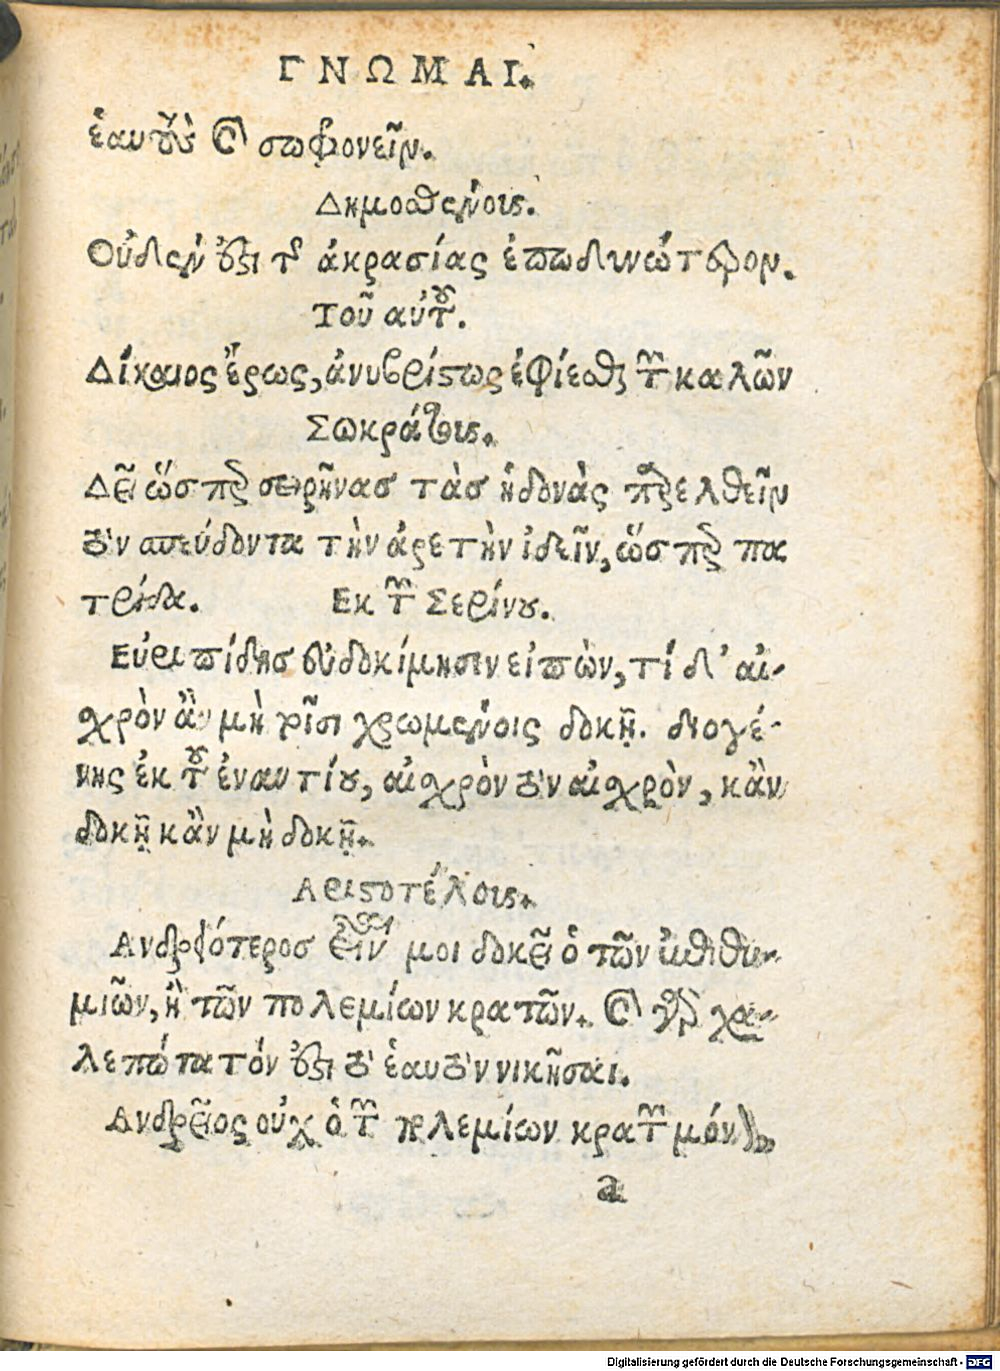 ΓΝΩΜΑΙ.
ἑαυτοὺς καὶ σωφρονεῖν.
Δημοσθένους.
Οὐδέν ἐστι τῆς ἀκρασίας ἐπωδινώτερον.
Τοῦ αὐτοῦ.
Δίκαιος ἔρως, ἀνυβρίστως ἐφίεσθαι τῶν καλῶν
Σωκράτους.
Δεῖ ὥσπερ σειρῆνας τὰς ἡδονὰς παρελθεῖν
τὸν σπεύδοντα τὴν ἀρετὴν ἰδεῖν, ὥσπερ πα
τρίδα. Εκ τῶν Σερίνου.
Εὐριπίδης εὐδοκίμησεν εἰπὼν, τί δ' αἰ-
χρὸν ἂν μὴ τοῖσι χρωμένοις δοκῇ. διογέ-
νης ἐκ τοῦ ἐναντίου, αἰχρὸν τὸν αἰχρὸν, κἂν
δοκῇ κἂν μὴ δοκῇ.
Αριστοτέλους.
Ανδρειότερος εἶναι μοι δοκεῖ ὁ τῶν ἐπιθυ-
μιῶν, ἢ τῶν πολεμίων κρατῶν. καὶ γὰρ χα-
λεπώτατόν ἐστι τὸ ἑαυτὸν νικῆσαι.
Ανδρεῖος οὐχ ὁ τῶν πολεμίων κρατῶν μόνον
a
Digitalisierung gefördert durch die Deutsche Forschungsgemeinschaft - DFG